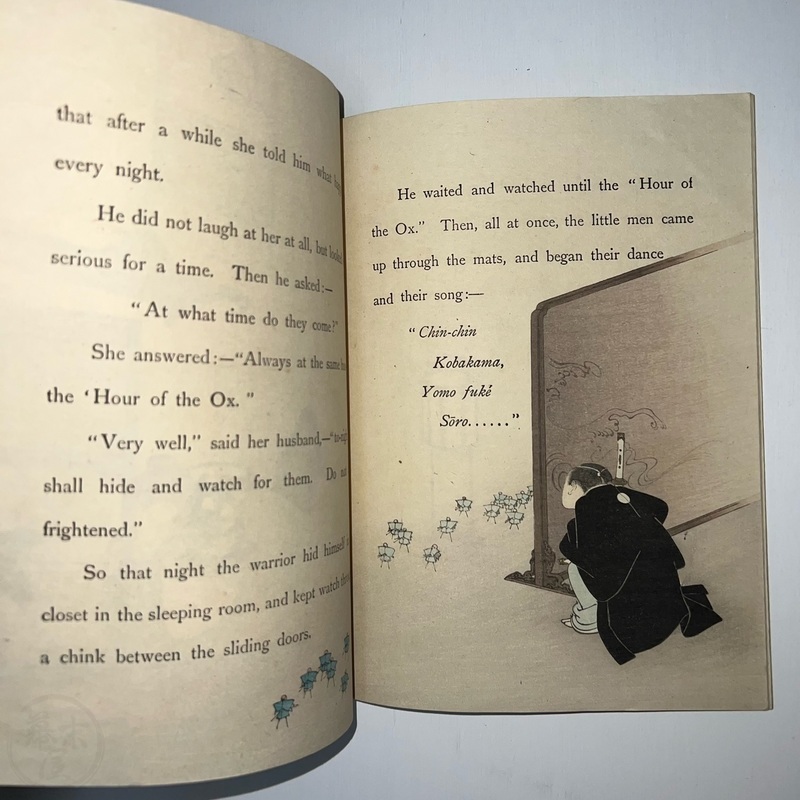 that after a while she told him what
every night.
He did not laugh at her at all, but looked
serious for a time. Then he asked:—
"At what time do they come?"
She answered:—"Always at the same
the 'Hour of the Ox."
"Very well," said her husband,—
shall hide and watch for them. Do
frightened."
So that night the warrior hid himself
closet in the sleeping room, and kept watch
a chink between the sliding doors.
He waited and watched until the "Hour of
the Ox." Then, all at once, the little men came
up through the mats, and began their dance
and their song:—
"Chin-chin
Kobakama,
Yomo fuké
Sōro......"